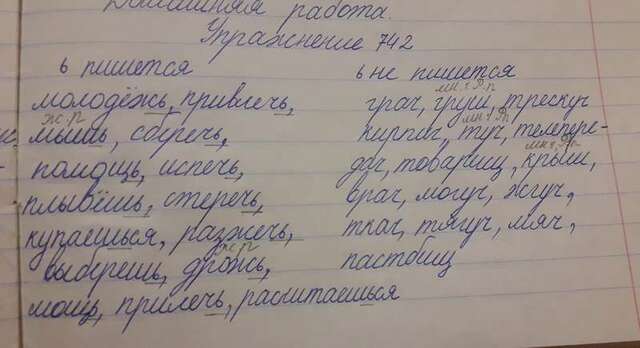 Домашняя работа.
Упражнение 742
ь пишется
молодёжь, привлечь,
ж.р
мышь, сберечь,
помощь, испечь,
плывёшь, стеречь,
купаешься, разжечь,
ж.р
выберешь, дрожь,
мощь, прилечь, расчитаешься
ь не пишется
мн.ч Р.п
грач, груш, трескуч
мн.ч Рп
кирпич, туч, телепере-
мн.ч Р.п
дач, товарищ, крыш,
врач, могуч, жгуч,
ткач, тягуч, мяч,
пастбищ